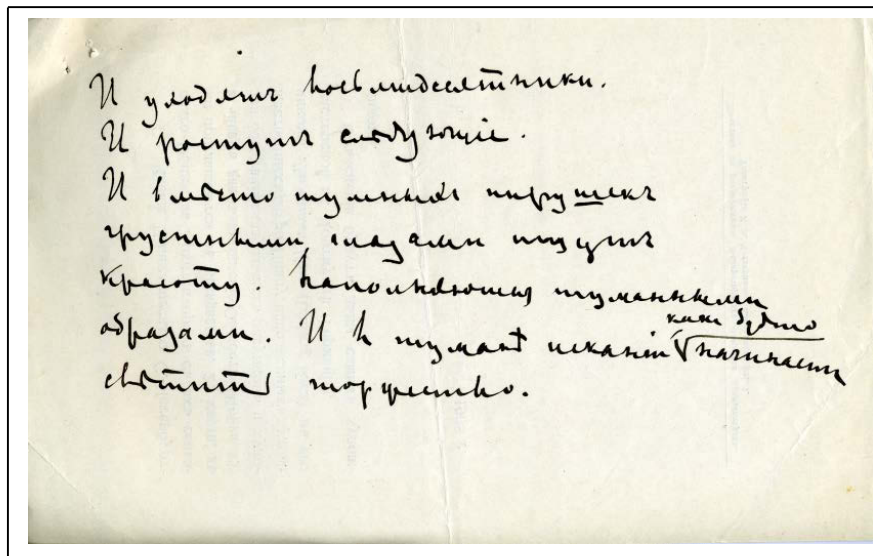 И уходятъ восьмидесятники.
И ростутъ слѣдующіе.
И вмѣсто шумныхъ пирушекъ
грустными глазами ищутъ
красоту. Наполняются туманными
образами. И в туманѣ исканій как будто начинает
свѣтить торжество.